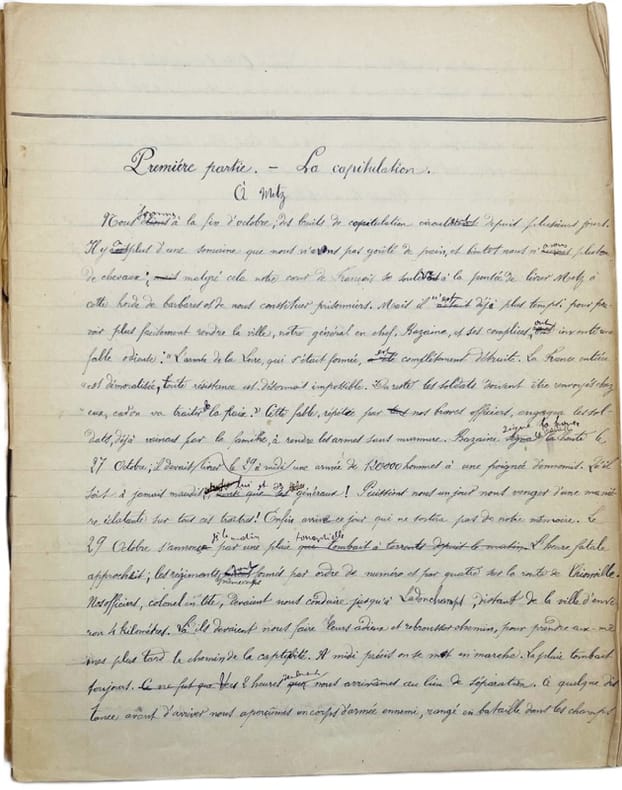 Première partie. – La capitulation.
À Metz
sommes
Nous étions à la fin d'octobre, des bruits de capitulation circulent depuis plusieurs jours.
Il y a plus d'une semaine que nous n'avons pas goûté de pain, et bientôt nous n'avons plus
de chevaux; mais malgré cela notre cœur de Français se soulève à la pensée de livrer Metz à
cette horde de barbares et de nous constituer prisonniers. Mais il n'est déjà plus temps; pour
voir plus facilement rendre la ville, notre général en chef, Bazaine, et ses complices, ont inventé une
fable odieuse: "L'armée de la Loire, qui s'était formée, est complètement détruite. La France entière
est démoralisée, toute résistance est désormais impossible. Du reste les soldats doivent être renvoyés chez
eux, car on va traiter de la paix." Cette fable, répétée par nos braves officiers, engagea les sol-
dats, déjà vaincus par la famine, à rendre les armes sans murmure. Bazaine signa le
27 Octobre; il devait livrer le 29 à midi une armée de 120000 hommes à une poignée d'ennemis. Qu'il
soit à jamais maudit, lui et ses généraux! Puissions nous un jour nous venger d'une maniè-
re éclatante sur tous ces traîtres! Enfin arrive ce jour qui ne sortira pas de notre mémoire. Le
29 Octobre s'annonce par une pluie torrentielle que tombait à torrents depuis le matin. L'heure fatale
approchait; les régiments formés par ordre de numéro et par quatre sur la route de Thionville.
Nos officiers, colonel en tête, devaient nous conduire jusqu'à Ladonchamps, distant de la ville d'envi-
ron 4 kilomètres. Là ils devaient nous faire leurs adieux et rebrousser chemin, pour prendre eux-mê-
mes plus tard le chemin de la captivité. A midi précis on se met en marche. La pluie tombait
toujours. Ce ne fut que vers 2 heures que nous arrivâmes au lieu de séparation. A quelque dis-
tance avant d'arriver nous aperçûmes un corps d'armée ennemi, rangé en bataille dans les champs